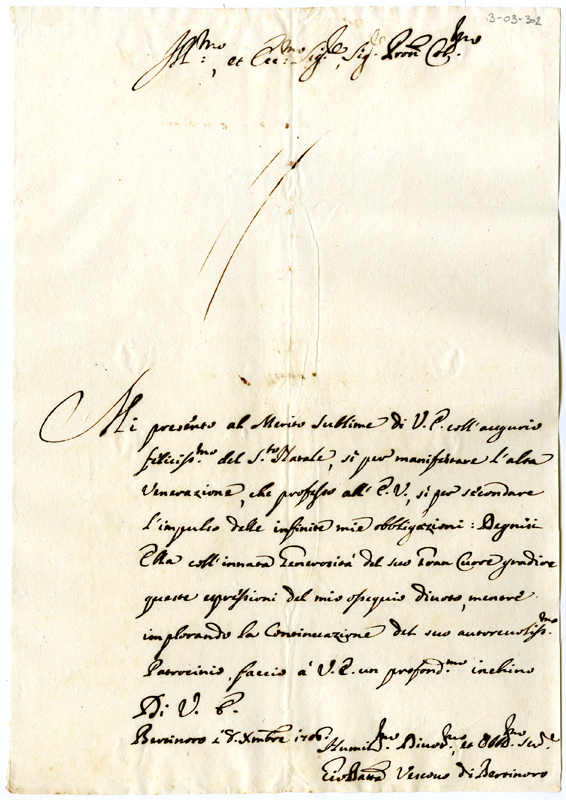 3-03-302
Ill.mo, et Ecc.mo Sig.re, Sig.re Pron Col.mo
Mi presento al Merito sublime di V. E. coll'augurio
feliciss.mo del S.to Natale, sì per manifestare l'alta
venerazione, che professo all'E. V., sì per secondare
l'impulso delle infinite mie obbligazioni: Degnisi
Ella coll'innata Generosità del suo Gran Cuore gradire
queste espressioni del mio ossequio divoto, mentre
implorando la Continuazione del suo autorevoliss.mo
Patrocinio, faccio à V. E. un profond.mo inchino
Di V. E.
Bertinoro Xmbre
Humil.mo Divot.mo, et Obb.mo Ser.e
Gio Batta Vescovo di Bertinoro